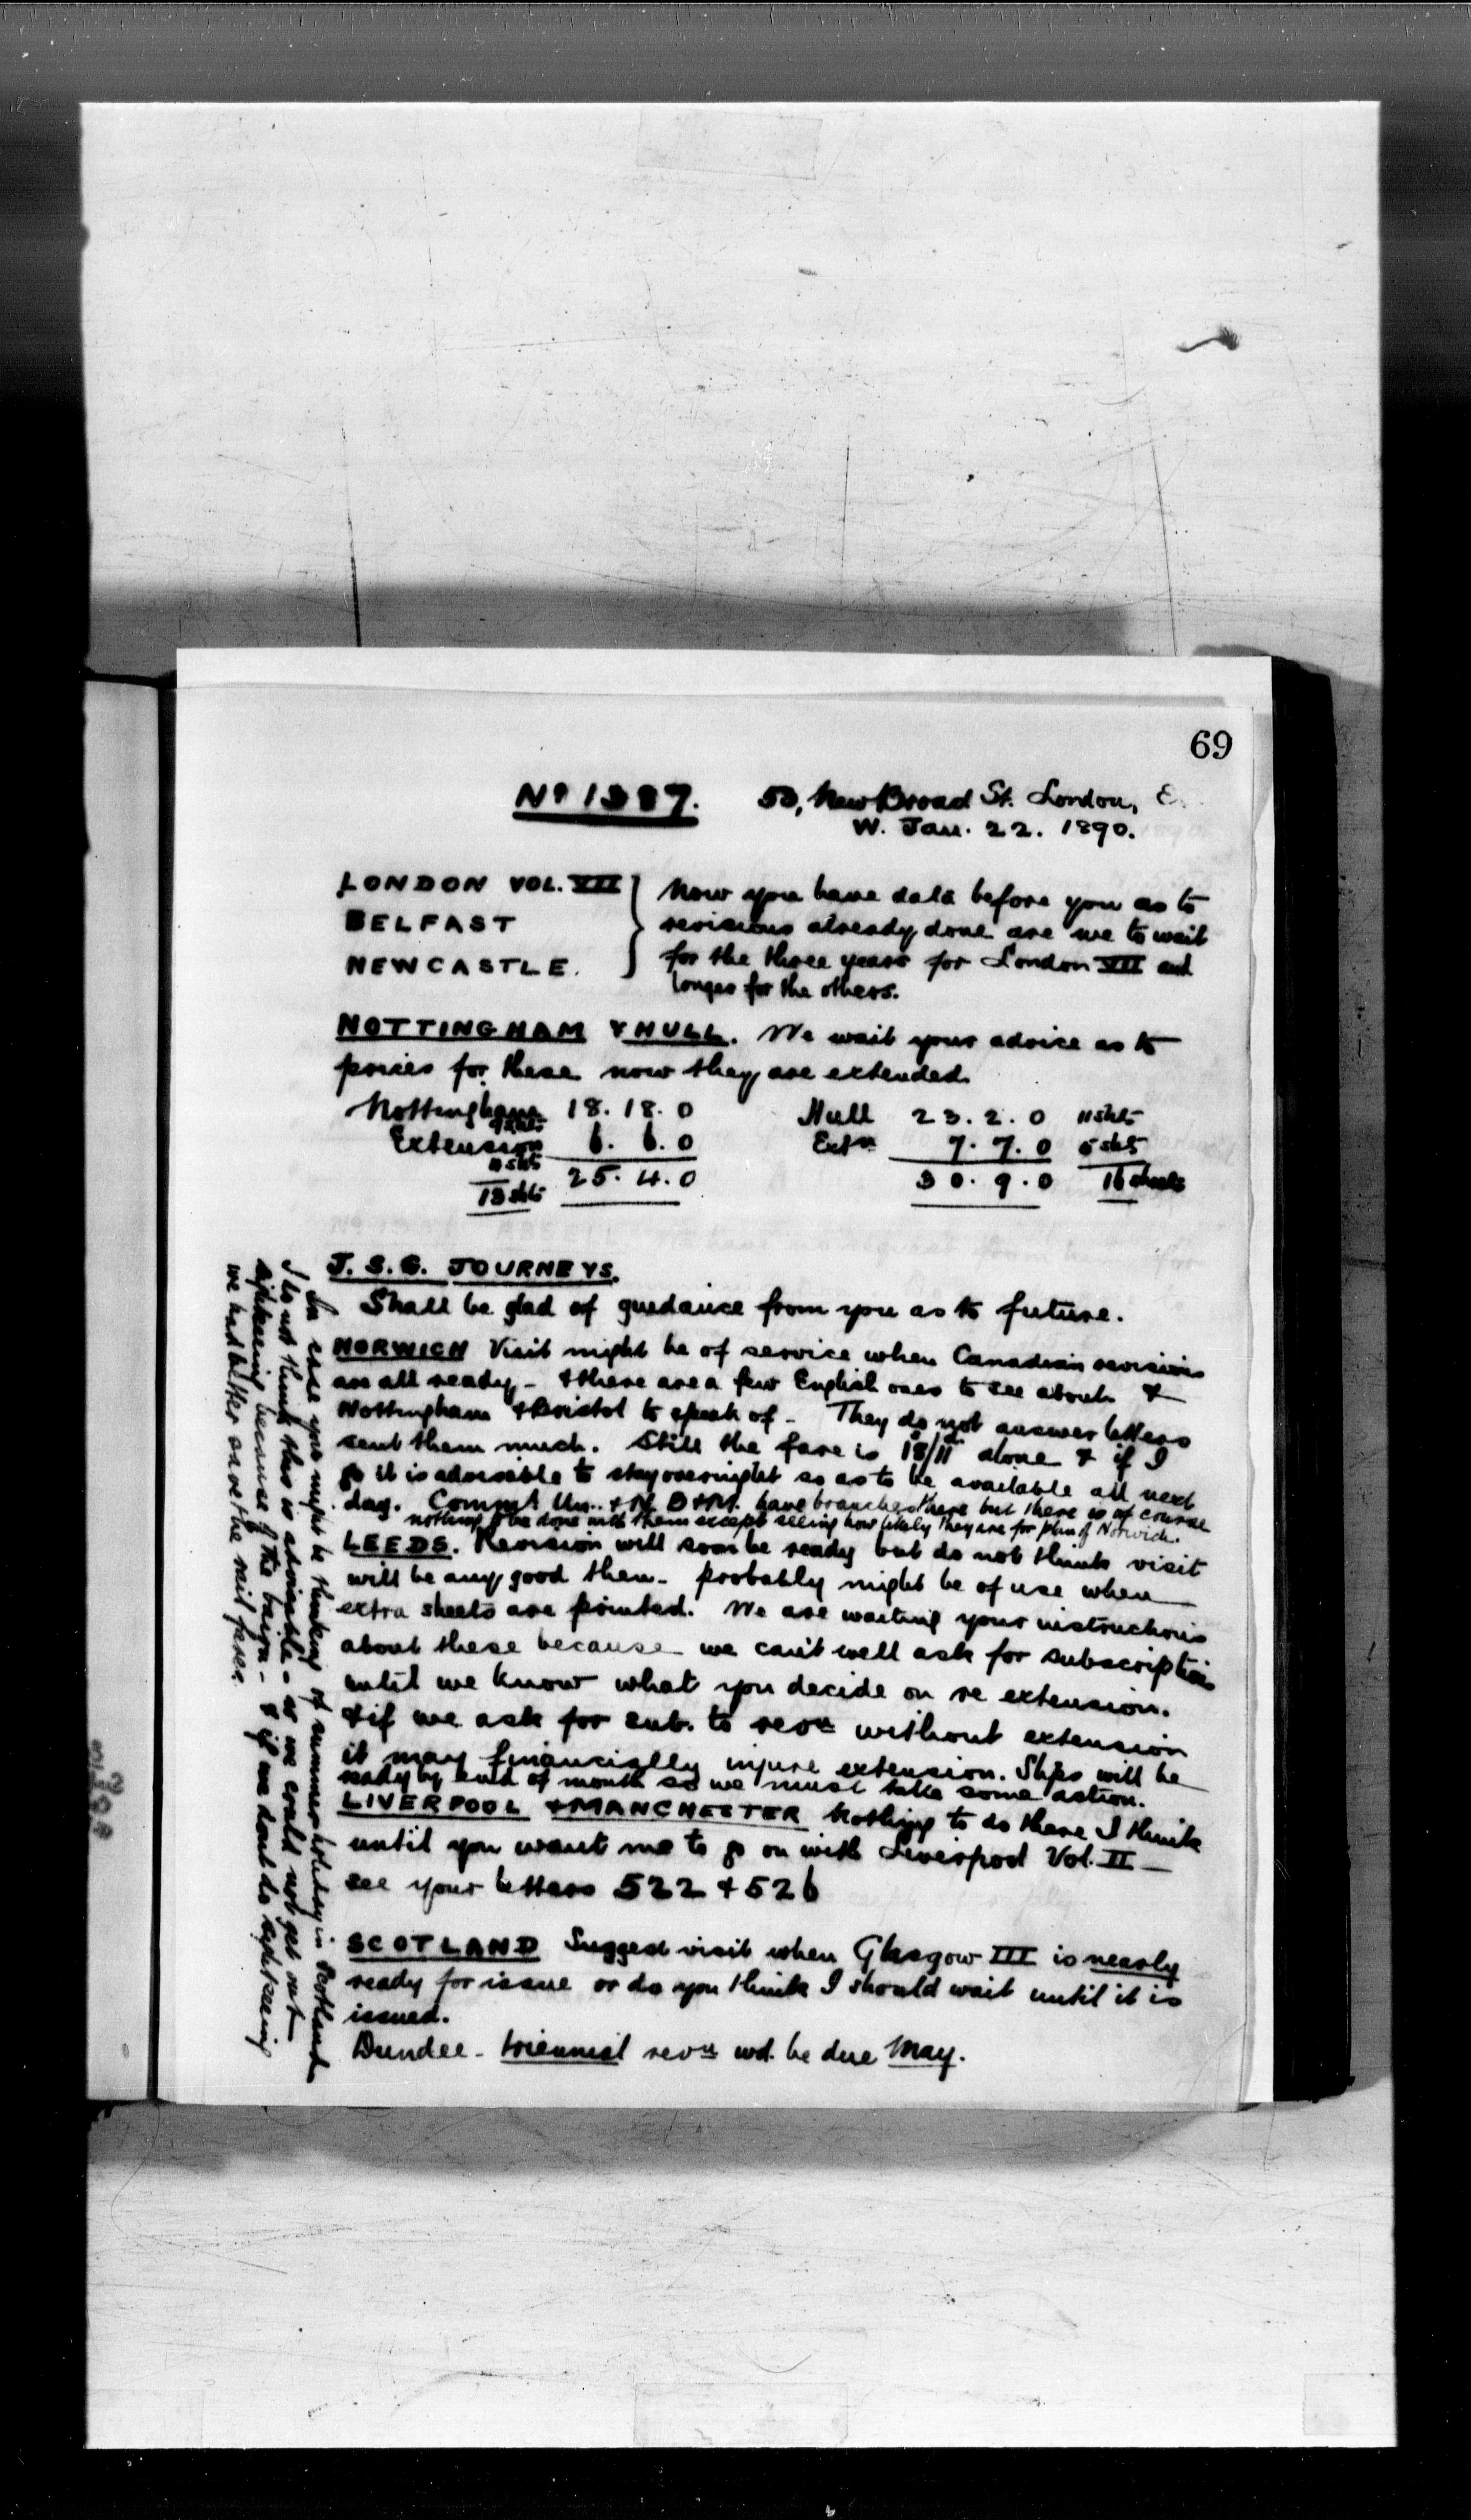 69
No 1387. 50, New Broad St. London, E.
W. Jan. 22. 1890.
LONDON VOL. VII
BELFAST
NEWCASTLE.
Now you have data before you as to
revisions already done are we to wait
for the three years for London VII and
longer for the others.
NOTTINGHAM & HULL. We wait your advice as to
prices for these now they are extended.
Nottingham 18. 18. 0 Hull 23. 2. 0 11 shts
Extension 6. 6. 0 Extn 7. 7. 0 5 shts
13 shts 25. 4. 0 30. 9. 0 16 sheets
J. S. G. JOURNEYS.
Shall be glad of guidance from you as to future.
NORWICH Visit might be of service when Canadian revisions
are all ready - & there are a few English ones to see about &
Nottingham & Bristol to speak of - They do not answer letters
sent them much. Still the fare is 18/11d alone & if I
go it is advisable to stay overnight so as to be available all next
day. Comml Un. & N. B & M. have branches there but there is of course
nothing to be done with them except seeing how likely they are for plan of Norwich.
LEEDS. Revision will soon be ready but do not think visit
will be any good then - probably might be of use when
extra sheets are printed. We are waiting your instructions
about these because we can't well ask for subscription
until we know what you decide on re extension.
& if we ask for sub. to revn without extension
it may financially injure extension. Slips will be
ready by end of month so we must take some action.
LIVERPOOL & MANCHESTER Nothing to do there I think
until you want me to go on with Liverpool Vol. II -
see your letters 522 & 526
SCOTLAND Suggest visit when Glasgow III is nearly
ready for issue or do you think I should wait until it is
issued.
Dundee - triennial revn wd. be due May.
In case you might be thinking of summer holiday in Scotland
I do not think this is advisable - as we could not get out
sightseeing because of the bairn - & if we dont do sightseeing
we had better save the rail fares.